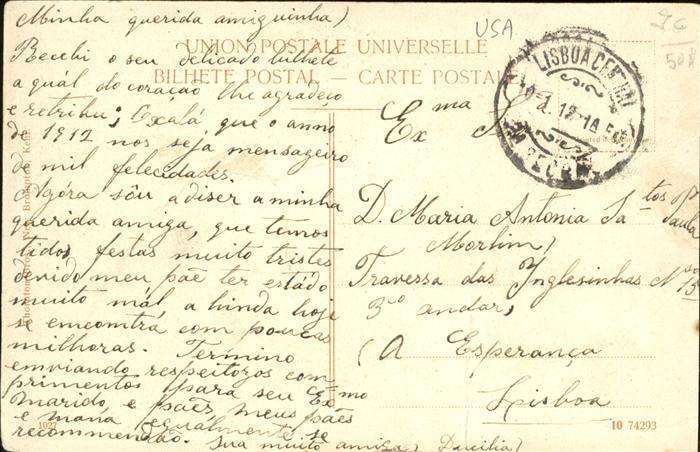 Minha querida amiguinha,
Recebi o seu delicado bilhete
a quál do coração lhe agradeço
e retribu; Oxalá que o anno
de 1912 nos seja mensageiro
de mil felecidades.
Agóra sôu a diser a minha
querida amiga, que temos
tido, festas muito tristes
devido meu pãe ter estádo
muito mál, a hinda hoje
se emcomtra com poucas
milhoras. Termino
emviando respeitozos com
primentos para seu Exmo
marido e pãez, meus pães
e maná egualmente se
recommendão.
Sua muito amiga, Ducilia
UNION POSTALE UNIVERSELLE
BILHETE POSTAL — CARTE POSTALE
USA
76
508
LISBOA CENTRAL
Exma Sra
D. Maria Antonia Santos
Paula
Travessa das Inglesinhas Nº 15
3º andar,
(A Esperança
Lisboa
1927
10 74293